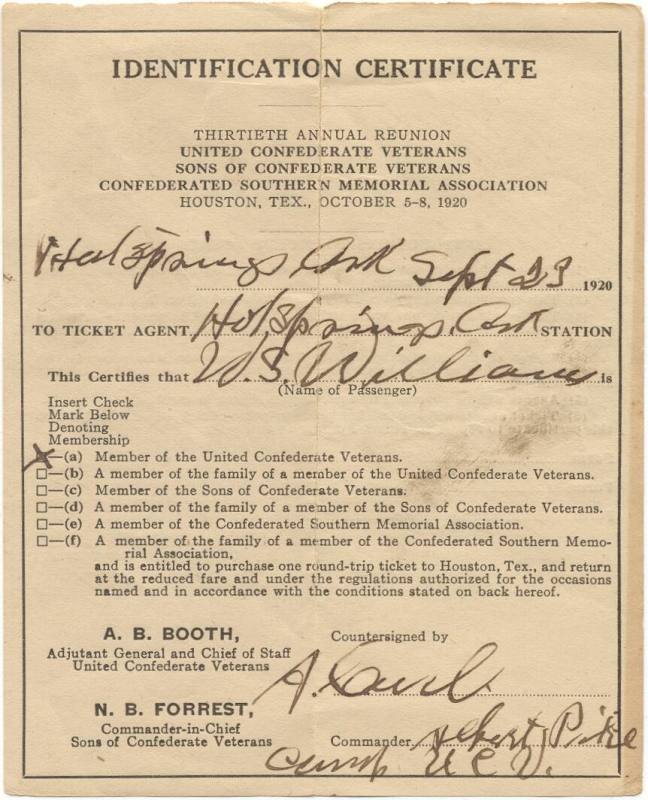 IDENTIFICATION CERTIFICATE
THIRTIETH ANNUAL REUNION
UNITED CONFEDERATE VETERANS
SONS OF CONFEDERATE VETERANS
CONFEDERATED SOUTHERN MEMORIAL ASSOCIATION
HOUSTON, TEX., OCTOBER 5–8, 1920
Hot Springs Ark Sept 23 1920
TO TICKET AGENT Hot Springs, Ark STATION
This Certifies that W. S. Williams is
(Name of Passenger)
Insert Check
Mark Below
Denoting
Membership
X—(a) Member of the United Confederate Veterans.
☐—(b) A member of the family of a member of the United Confederate Veterans.
☐—(c) Member of the Sons of Confederate Veterans.
☐—(d) A member of the family of a member of the Sons of Confederate Veterans.
☐—(e) A member of the Confederated Southern Memorial Association.
☐—(f) A member of the family of a member of the Confederated Southern Memo-
rial Association,
and is entitled to purchase one round-trip ticket to Houston, Tex., and return
at the reduced fare and under the regulations authorized for the occasions
named and in accordance with the conditions stated on back hereof.
A. B. BOOTH,
Adjutant General and Chief of Staff
United Confederate Veterans
Countersigned by
A.
N. B. FORREST,
Commander-in-Chief
Sons of Confederate Veterans
Commander Albert Pike
Camp U C V.